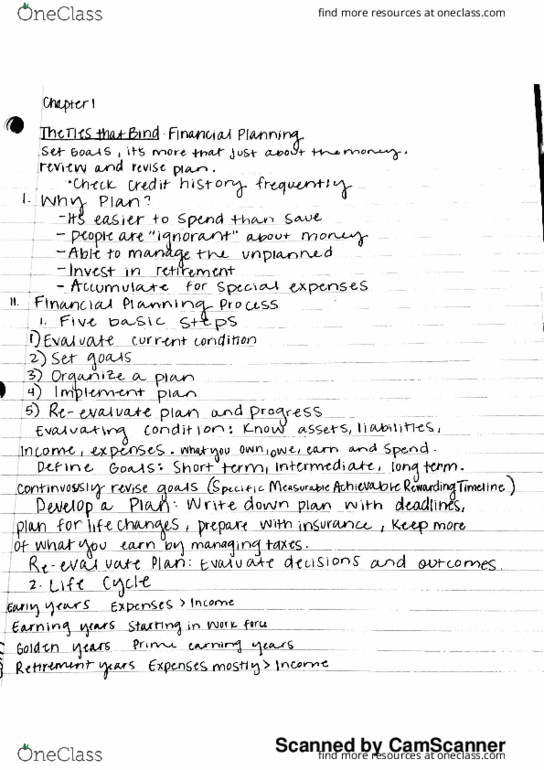 OneClass
find more resources at oneclass.com
Chapter 1
The Ties that Bind - Financial Planning
Set Goals, it's more that just about the money.
review and revise plan.
•Check credit history frequently
I. Why Plan?
-It's easier to spend than save
- people are "ignorant" about money
- Able to manage the unplanned
- Invest in retirement
- Accumulate for special expenses
II. Financial Planning Process
1. Five basic steps
1) Evaluate current condition
2) Set goals
3) Organize a plan
4) Implement plan
5) Re-evaluate plan and progress
Evaluating condition: Know assets, liabilities,
income, expenses. what you own, owe, earn and spend.
Define Goals: Short term, intermediate, long term.
continuously revise goals (Specific Measurable Achievable Rewarding Timeline)
Develop a Plan: Write down plan with deadlines,
plan for life changes, prepare with insurance, Keep more
of what you earn by managing taxes.
Re-evaluate Plan: Evaluate decisions and outcomes.
2. Life Cycle
Early years Expenses > Income
Earning years Starting in work force
Golden years Prime earning years
Retirement years Expenses mostly > Income
Scanned by CamScanner
OneClass
find more resources at oneclass.com